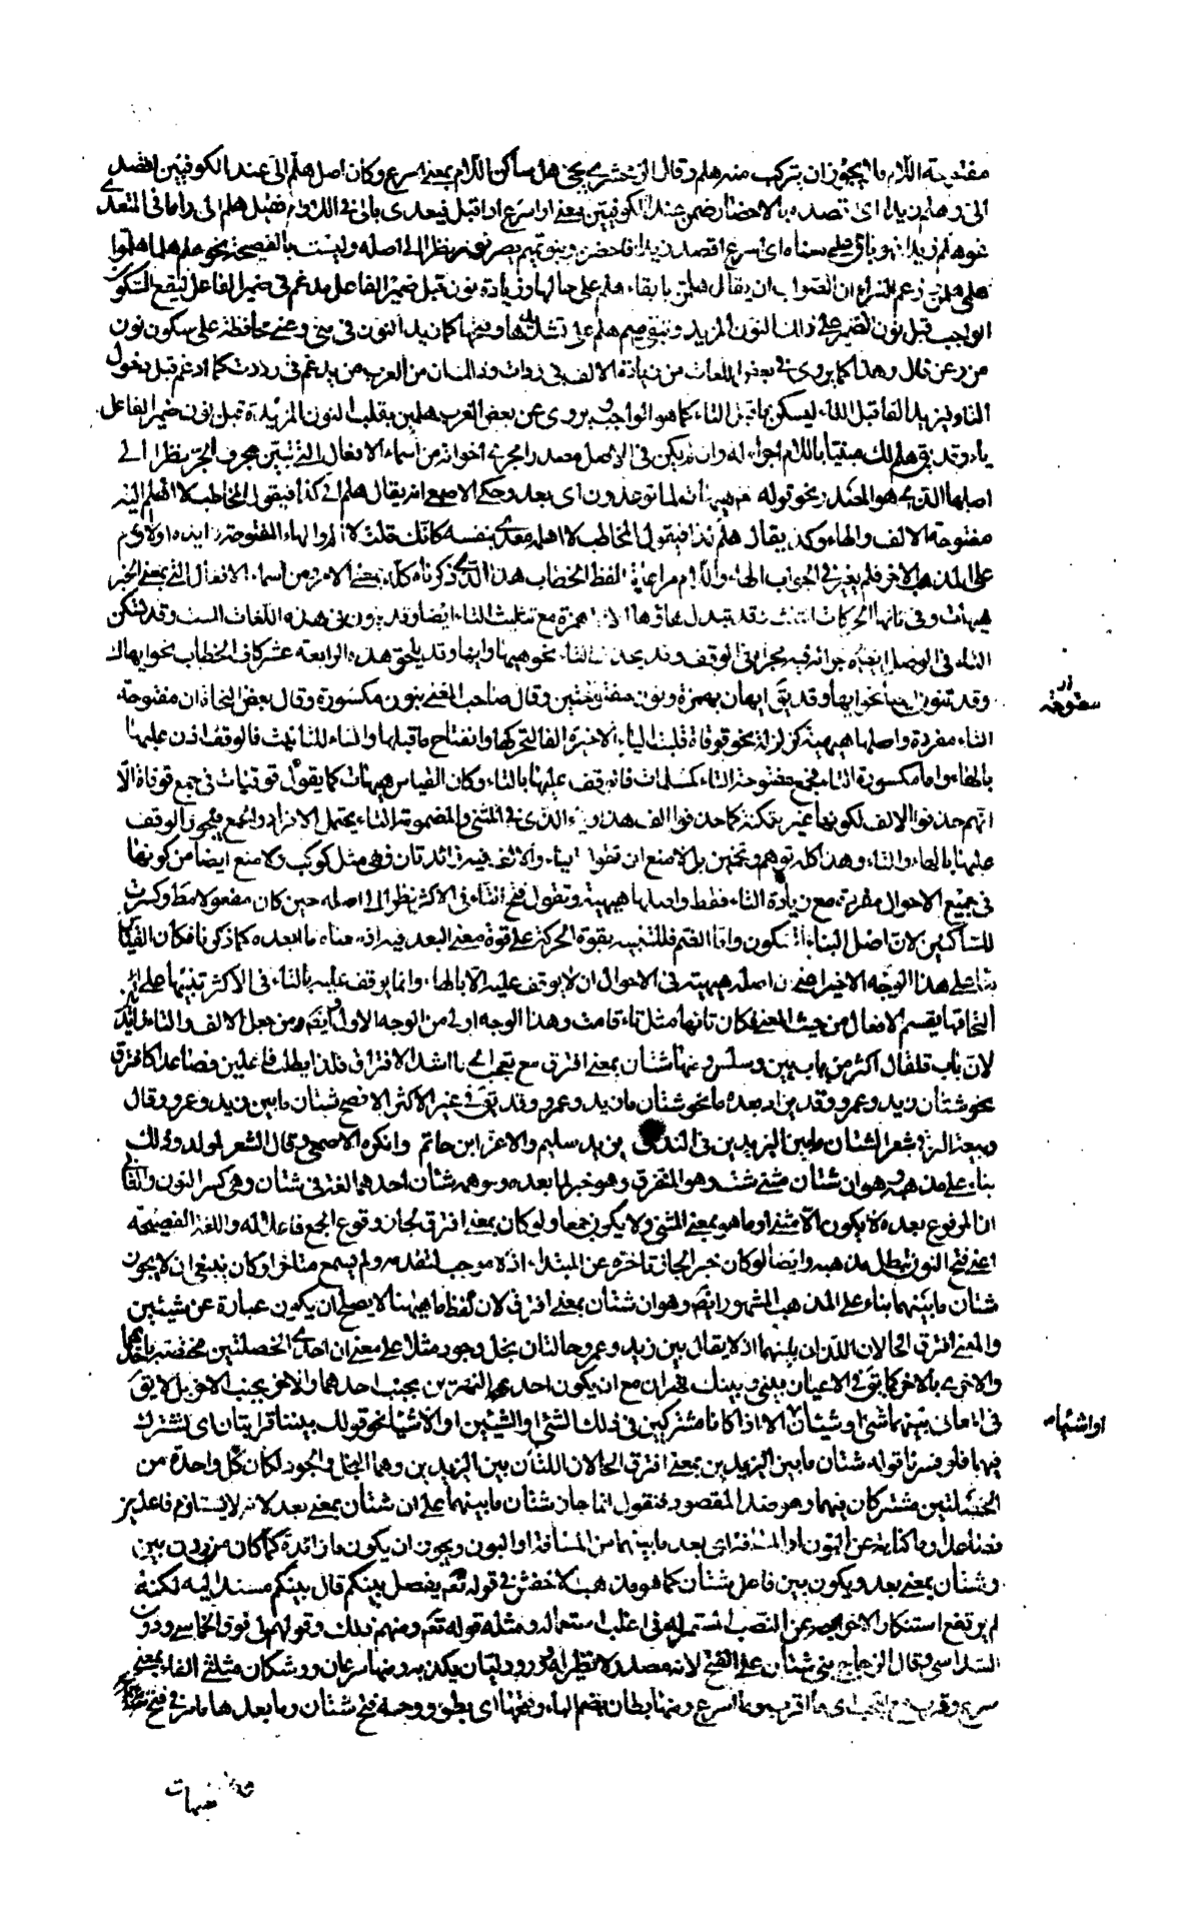 مفتوحة اللام ما يجوز ان يتركب منه هلم وقال الزمخشري يجئ هل ساكن اللام بمعنى اسرع وكان اصل هلم الى عند الكوفيين اقصد
اى اسرع اقصد زيدا فاحضره وبنو تميم يصرفونه نظرا الى اصله وليست بالفصيحة نحو هلم هلما هلموا
هلمى هلممن وزعم الفراء ان الصواب ان يقال هلمن بابقاء هلم على حالها وزيادة نون قبل ضمير الفاعل مدغم فى ضمير الفاعل ليقع السكون
الواجب قبل نون الضمير على ذلك النون المزيد ويبقى ميم هلم على تشديدها وفتحها كما زيد النون فى منى وعنى محافظة على سكون نون
من وعن قال وهذا كما يروى فى بعض اللغات من زيادة الالف فى ردات وذلك ان من العرب من يدغم فى رددت كما ادغم قبل دخول
التاء ويزيد الفا قبل التاء ليسكن ما قبل التاء كما هو الواجب ويروى عن بعض العرب هلمين بقلب النون المزيدة قبل نون ضمير الفاعل
ياء وقد يق هلم لك مبنيا باللام اجراء له وان لم يكن فى الاصل مصدرا مجرى اخواته من اسماء الافعال التى تبين بحرف الجر نظرا الى
اصلها الذى هو المصدر نحو قوله تعم هيهات لما توعدون اى بعد وحكى الاصمعى انه يقال هلم الى كذا فيقول المخاطب لا اهلم اليه
مفتوحة الالف والهاء وكذا يقال هلم كذا فيقول المخاطب لا اهلمه معدى بنفسه كانك قلت لا الم والهاء المفتوحة زايدة
هيهات وفى تائها الحركات الثلث وقد تبدل هاؤها الاولى همزة مع تثليث التاء ايضا وقد ينون فى هذه اللغات الست وقد تسكن
التاء فى الوصل ايضا لاجرائه فيه مجراه فى الوقف وقد يحذف التاء نحو هيها وايها وقد يلحق هذه الرابعة عشر كاف الخطاب نحو ايهاك
وقد تنون ايضا نحو ايها وقد يق ايهان بهمزة ونون مفتوحتين وقال صاحب المغنى بنون مكسورة وقال بعض النحاة ان مفتوحة
مفتوحة
التاء مفردة واصلها هيهية كزلزلة نحو قوقاة قلبت الياء الاخيرة الفا لتحركها وانفتاح ما قبلها والتاء للتانيث فالوقف اذن عليها
بالهاء واما مكسورة التاء فجمع مفتوحة التاء كمسلمات فالوقف عليها بالتاء وكان القياس هيهيات كما يقول قوقيات فى جمع قوقاة الا
انهم حذفوا الالف لكونها غير متمكنة كما حذفوا الف هذا وياء الذى فى المثنى والمضمومة التاء يحتمل الافراد والجمع فيجوز الوقف
عليها بالهاء والتاء وهذا كله توهم وتخمين بل لا منع ان تقول التاء والالف فيه زائدتان فهى مثل كوكب ولا منع ايضا من كونها
فى جميع الاحوال مفردة مع زيادة التاء فقط واصلها هيهية وتقول فتح التاء فى الاكثر نظر الى اصله حين كان مفعولا مطلقا وكسرت
للساكنين لان اصل البناء السكون واما الضم فللتنبيه بقوة الحركة على قوة معنى البعد فيه اذ معناه ما ابعده كما ذكرنا فكان القياس
بناء على هذا الوجه الاخير اعنى ان اصله هيهية فى الاحوال ان لا يوقف عليه الا بالهاء وانما يوقف عليه بالتاء فى الاكثر تنبيها على
التحاقها بقسم الافعال من حيث المعنى فكان تائها مثل تاء قامت وهذا الوجه اولى من الوجه الاول وايضم ومن جعل الالف والتاء زائدتين
لان باب قلقال اكثر من باب يين وسلس ومنها شتان بمعنى افترق مع تعجب اى ما اشد الافتراق فلذا يطلب فاعلين فصاعدا كافترق
نحو شتان زيد وعمرو وقد يزاد بعده ما نحو شتان ما زيد وعمرو وقد يق فى غير الاكثر الافصح شتان ما بين زيد وعمرو وقال
ربيعة الرقى شعر لشتان ما بين اليزيدين فى الندى يزيد سليم والاغر ابن حاتم وانكره الاصمعى وقال الشعر لمولد وذلك
بناء على مذهبه وهو ان شتان مثنى شت وهو المتفرق وهو خبر لما بعده ويوهمه شتان احدهما لغة فى شتان وهى كسر النون والثانى
ان المرفوع بعده لا يكون الا مثنى او ما هو بمعنى المثنى ولا يكون جمعا ولو كان بمعنى افترق لجاز وقوع الجمع فاعلا له واللغة الفصيحة
اعنى فتح النون تبطل مذهبه وايضا لو كان خبرا لجاز تاخره عن المبتداء اذ لا موجب لتقدمه ولم يسمع متاخرا وكان ينبغى ان لا يجوز
شتان ما بينهما بناء على المذهب المشهور ايضم وهو ان شتان بمعنى افترق لان لفظ ما ههنا لا يصلح ان يكون عبارة عن شيئين
والمعنى افترق الحالان اللذان بينهما اذ لا يقال بين زيد وعمرو حالتان بخل وجود مثلا على معنى ان احدى الخصلتين مختصة باحدهما
والاخرى بالاخر كما يق فى الاعيان بينى وبينك نهران مع ان يكون احد النهرين بجنب احدهما والاخر بجنب الاخر بل لا يق
فى المعانى بينهما شئ او شيئان الا اذا كانا مشتركين فى ذلك الشئ او الشيئين او الاشياء نحو قولك بيننا قرابتان اى اشترك
او اشياء
فيها فلو فسرنا قوله شتان ما بين اليزيدين بمعنى افترق الحالان اللتان بين اليزيدين وهما البخل والجود لكان كل واحدة من
الخصلتين مشتركا بينهما وهو ضد المقصود فنقول انما جاز شتان ما بينهما على ان شتان بمعنى بعد لانه لا يستلزم فاعلين
فصاعدا وما كناية عن البون او المسافة اى بعد ما بينهما من المسافة او البون ويجوز ان يكون ما زائدة كما كان من دون بين
وشتان بمعنى بعد ويكون بين فاعل شتان كما هو مذهب الاخفش فى قوله تعم يفصل بينكم قال بينكم مسند اليه لكنه
لم يرتفع استنكارا لاخراجه عن النصب المستمر له فى اغلب استعماله ومثله قوله تعم ومنهم دون ذلك وقولهم لى فوق الخماسى ودون
السداسى وقال الزجاج بنى شتان على الفتح لانه مصدر لا نظير له ورد بليان يكذبه ومنها سرعان ووشكان مثلثى الفاء بمعنى
سرع وقرب مع تعجب اى ما اقرب وما اسرع ومنها بطان بضم الباء وفتحها اى بطؤ ووجه فتح شتان وما بعدها ما مر فى فتح
هيهات